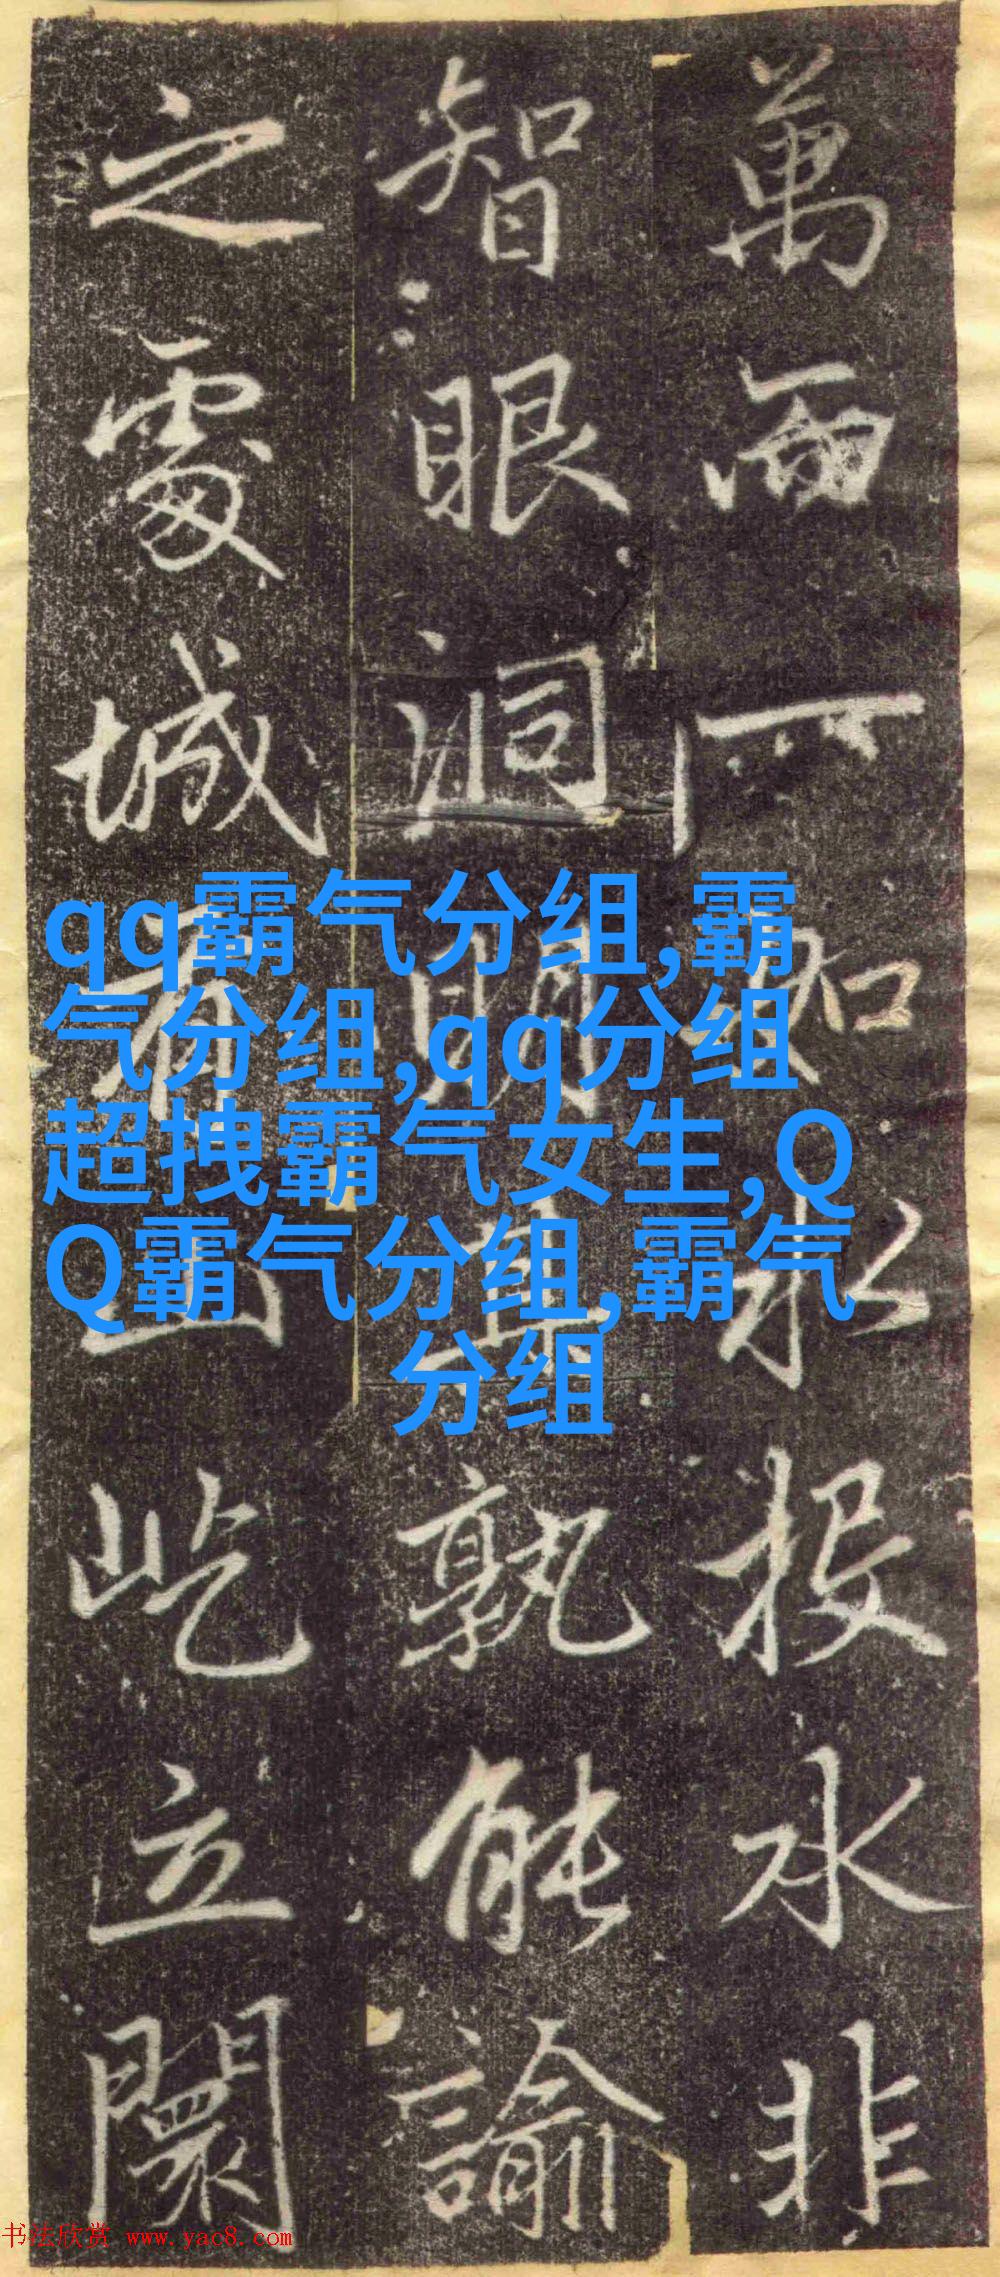 萬一如水投水非
智眼洞明其孰能諭
之處城有山屹立闤
qq霸气分组,霸
气分组,qq分组
超拽霸气女生,Q
Q霸气分组,霸气
分组
书法欣赏 www.yac8.com